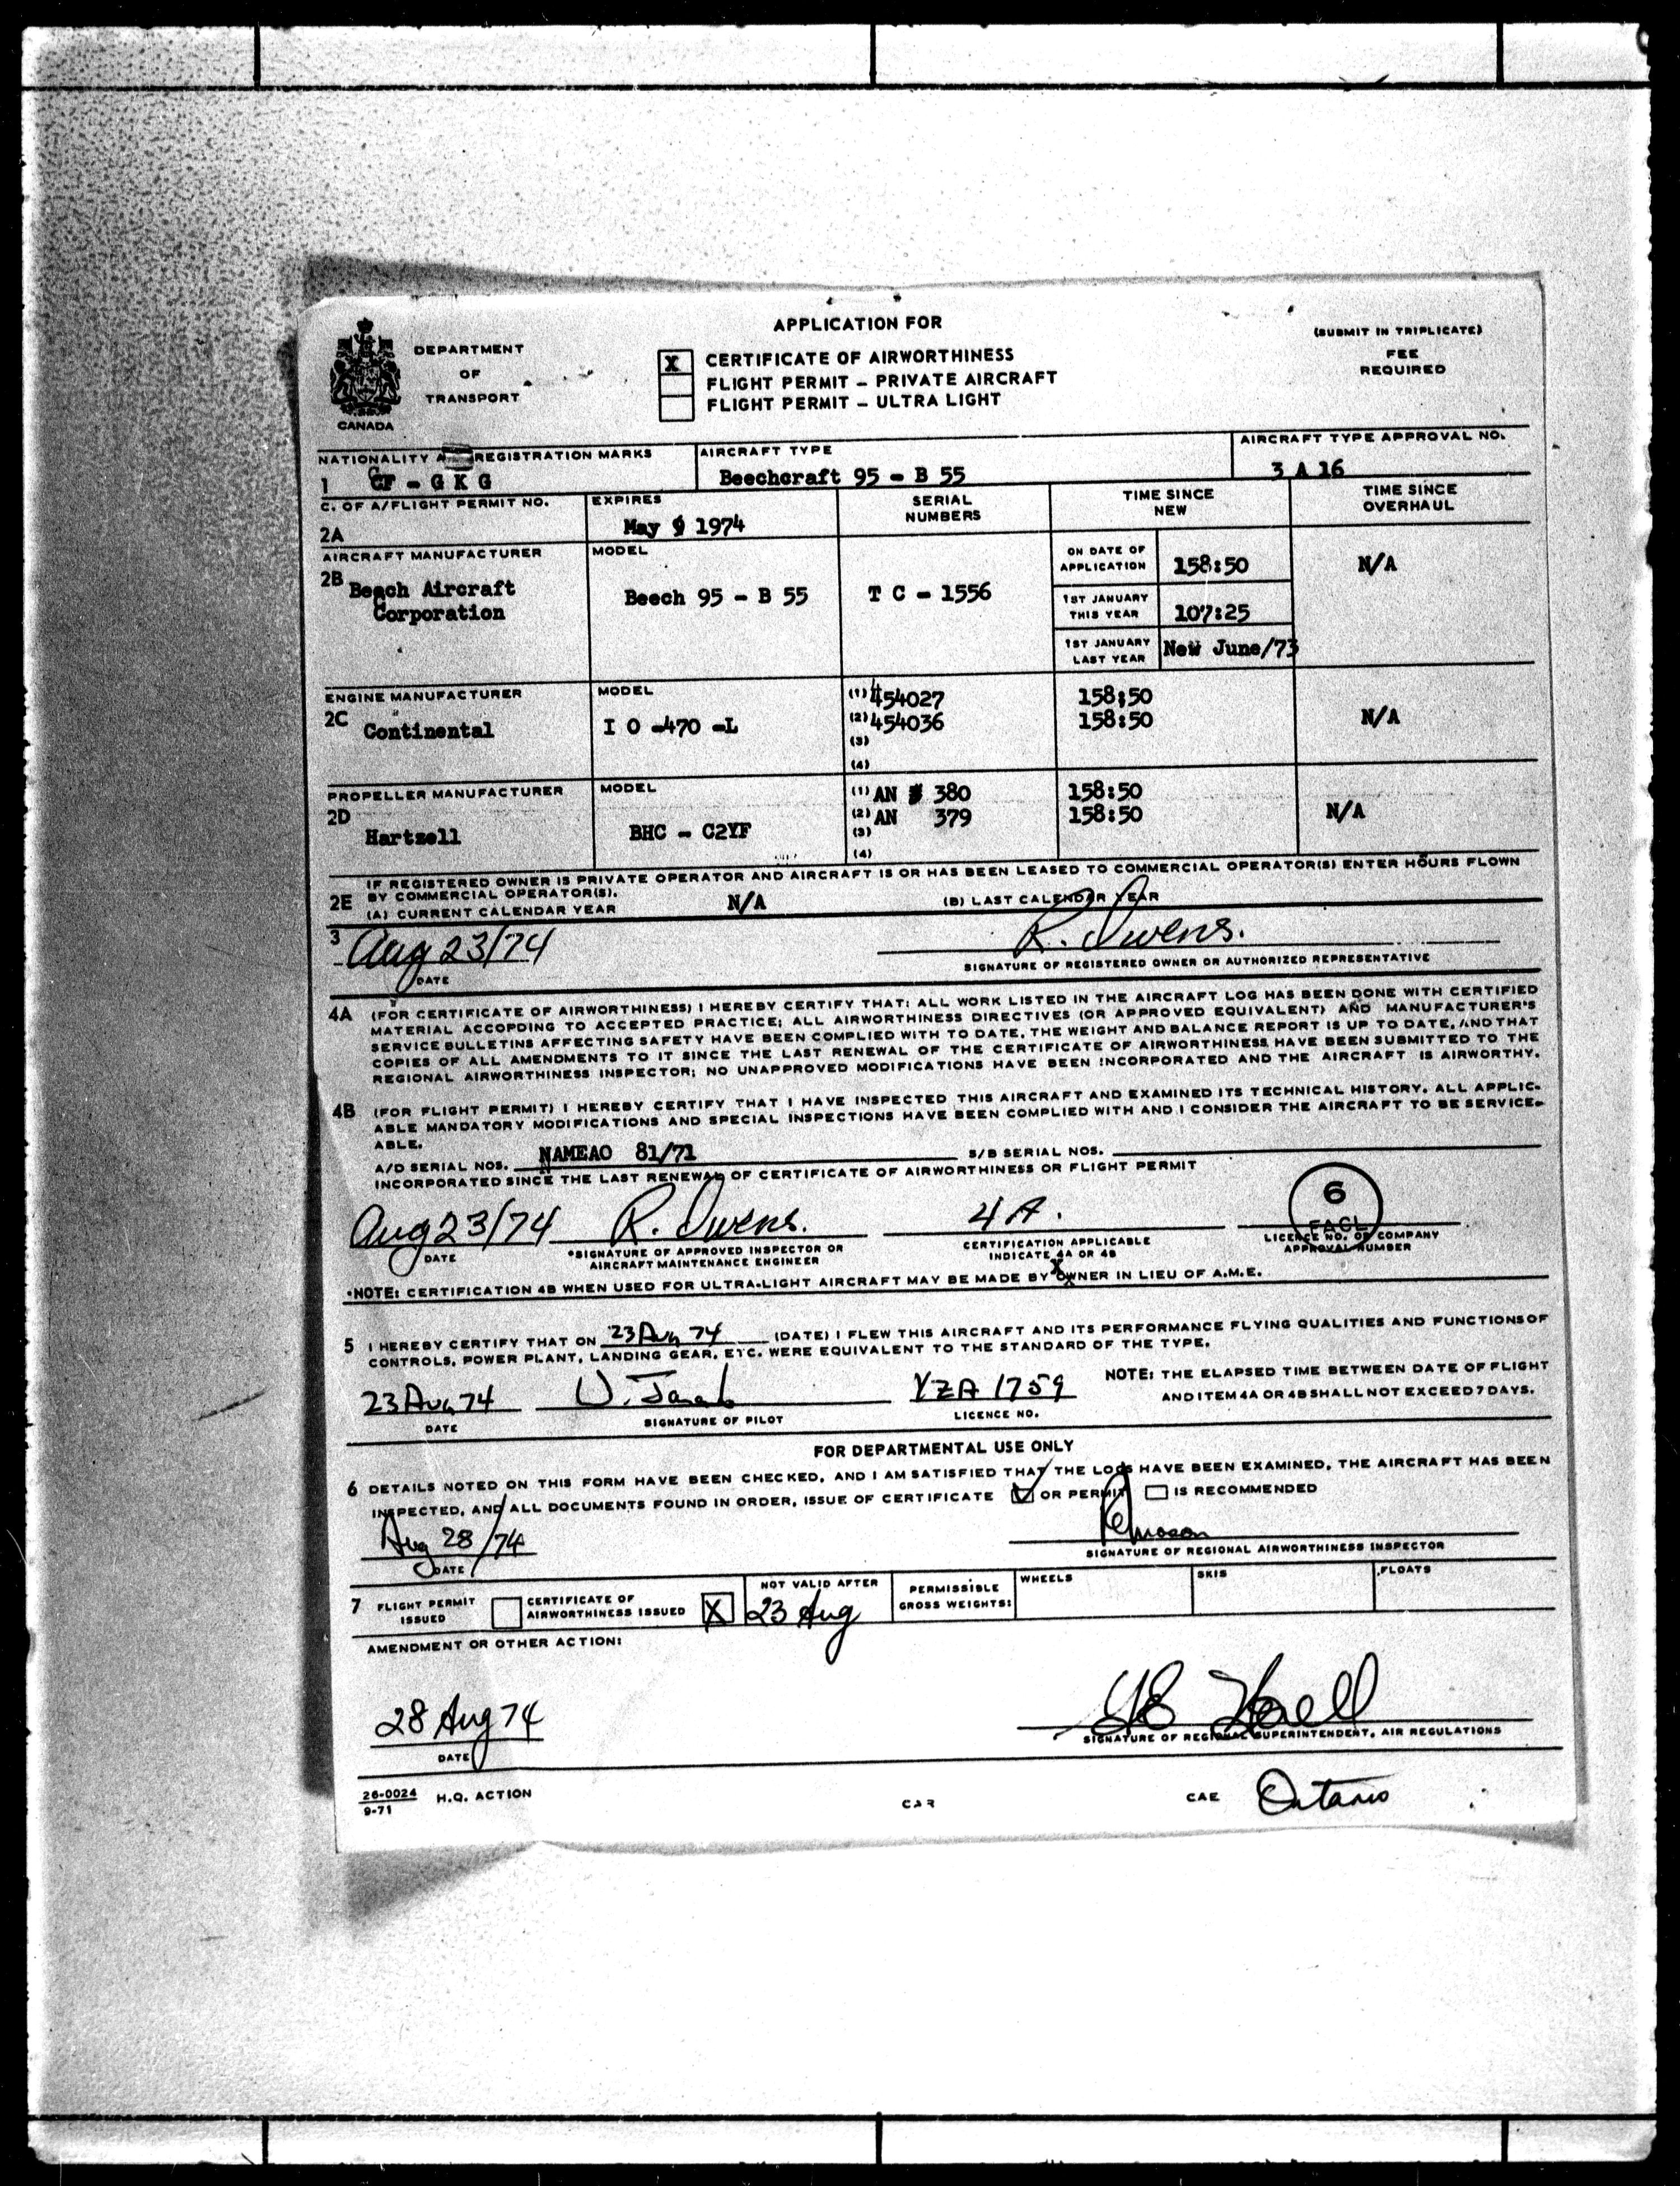 APPLICATION FOR
(SUBMIT IN TRIPLICATE)
DEPARTMENT
OF
TRANSPORT
CANADA
X CERTIFICATE OF AIRWORTHINESS
FLIGHT PERMIT – PRIVATE AIRCRAFT
FLIGHT PERMIT – ULTRA LIGHT
FEE
REQUIRED
NATIONALITY REGISTRATION MARKS
1 CF - G K G
AIRCRAFT TYPE
Beechcraft 95 - B 55
AIRCRAFT TYPE APPROVAL NO.
3 A 16
C. OF A/FLIGHT PERMIT NO.
2A
EXPIRES
May 9 1974
SERIAL
NUMBERS
TIME SINCE
NEW
TIME SINCE
OVERHAUL
AIRCRAFT MANUFACTURER
2B Beach Aircraft
Corporation
MODEL
Beech 95 - B 55
T C - 1556
ON DATE OF
APPLICATION 158:50
1ST JANUARY
THIS YEAR 107:25
1ST JANUARY
LAST YEAR New June/73
N/A
ENGINE MANUFACTURER
2C Continental
MODEL
I O -470 -L
(1) 454027
(2) 454036
(3)
(4)
158:50
158:50
N/A
PROPELLER MANUFACTURER
2D
Hartzell
MODEL
BHC - C2YF
(1) AN 380
(2) AN 379
(3)
(4)
158:50
158:50
N/A
2E IF REGISTERED OWNER IS PRIVATE OPERATOR AND AIRCRAFT IS OR HAS BEEN LEASED TO COMMERCIAL OPERATOR(S) ENTER HOURS FLOWN
BY COMMERCIAL OPERATOR(S).
(A) CURRENT CALENDAR YEAR N/A (B) LAST CALENDAR YEAR
3 Aug 23/74 R. Owens.
DATE SIGNATURE OF REGISTERED OWNER OR AUTHORIZED REPRESENTATIVE
4A (FOR CERTIFICATE OF AIRWORTHINESS) I HEREBY CERTIFY THAT: ALL WORK LISTED IN THE AIRCRAFT LOG HAS BEEN DONE WITH CERTIFIED
MATERIAL ACCORDING TO ACCEPTED PRACTICE; ALL AIRWORTHINESS DIRECTIVES (OR APPROVED EQUIVALENT) AND MANUFACTURER'S
SERVICE BULLETINS AFFECTING SAFETY HAVE BEEN COMPLIED WITH TO DATE, THE WEIGHT AND BALANCE REPORT IS UP TO DATE, AND THAT
COPIES OF ALL AMENDMENTS TO IT SINCE THE LAST RENEWAL OF THE CERTIFICATE OF AIRWORTHINESS HAVE BEEN SUBMITTED TO THE
REGIONAL AIRWORTHINESS INSPECTOR; NO UNAPPROVED MODIFICATIONS HAVE BEEN INCORPORATED AND THE AIRCRAFT IS AIRWORTHY.
4B (FOR FLIGHT PERMIT) I HEREBY CERTIFY THAT I HAVE INSPECTED THIS AIRCRAFT AND EXAMINED ITS TECHNICAL HISTORY. ALL APPLIC-
ABLE MANDATORY MODIFICATIONS AND SPECIAL INSPECTIONS HAVE BEEN COMPLIED WITH AND I CONSIDER THE AIRCRAFT TO BE SERVICE-
ABLE.
A/D SERIAL NOS. NAMEAO 81/71 S/B SERIAL NOS.
INCORPORATED SINCE THE LAST RENEWAL OF CERTIFICATE OF AIRWORTHINESS OR FLIGHT PERMIT
Aug 23/74 R. Owens. 4 A. 6 FACL
DATE
*SIGNATURE OF APPROVED INSPECTOR OR
AIRCRAFT MAINTENANCE ENGINEER
CERTIFICATION APPLICABLE
INDICATE 4A OR 4B
X
LICENCE NO. OF COMPANY
APPROVAL NUMBER
*NOTE: CERTIFICATION 4B WHEN USED FOR ULTRA-LIGHT AIRCRAFT MAY BE MADE BY OWNER IN LIEU OF A.M.E.
5 I HEREBY CERTIFY THAT ON 23 Aug 74 (DATE) I FLEW THIS AIRCRAFT AND ITS PERFORMANCE FLYING QUALITIES AND FUNCTIONS OF
CONTROLS, POWER PLANT, LANDING GEAR, ETC. WERE EQUIVALENT TO THE STANDARD OF THE TYPE.
23 Aug 74 YZA 1759
DATE SIGNATURE OF PILOT LICENCE NO.
NOTE: THE ELAPSED TIME BETWEEN DATE OF FLIGHT
AND ITEM 4A OR 4B SHALL NOT EXCEED 7 DAYS.
FOR DEPARTMENTAL USE ONLY
6 DETAILS NOTED ON THIS FORM HAVE BEEN CHECKED, AND I AM SATISFIED THAT THE LOGS HAVE BEEN EXAMINED, THE AIRCRAFT HAS BEEN
INSPECTED, AND ALL DOCUMENTS FOUND IN ORDER, ISSUE OF CERTIFICATE OR PERMIT IS RECOMMENDED
Aug 28/74
DATE SIGNATURE OF REGIONAL AIRWORTHINESS INSPECTOR
7 FLIGHT PERMIT
ISSUED
CERTIFICATE OF
AIRWORTHINESS ISSUED X
NOT VALID AFTER
23 Aug
PERMISSIBLE
GROSS WEIGHTS:
WHEELS
SKIS
FLOATS
AMENDMENT OR OTHER ACTION:
28 Aug 74
DATE SIGNATURE OF REGIONAL SUPERINTENDENT, AIR REGULATIONS
26-0024
9-71
H.Q. ACTION
CAR
CAE Ontario